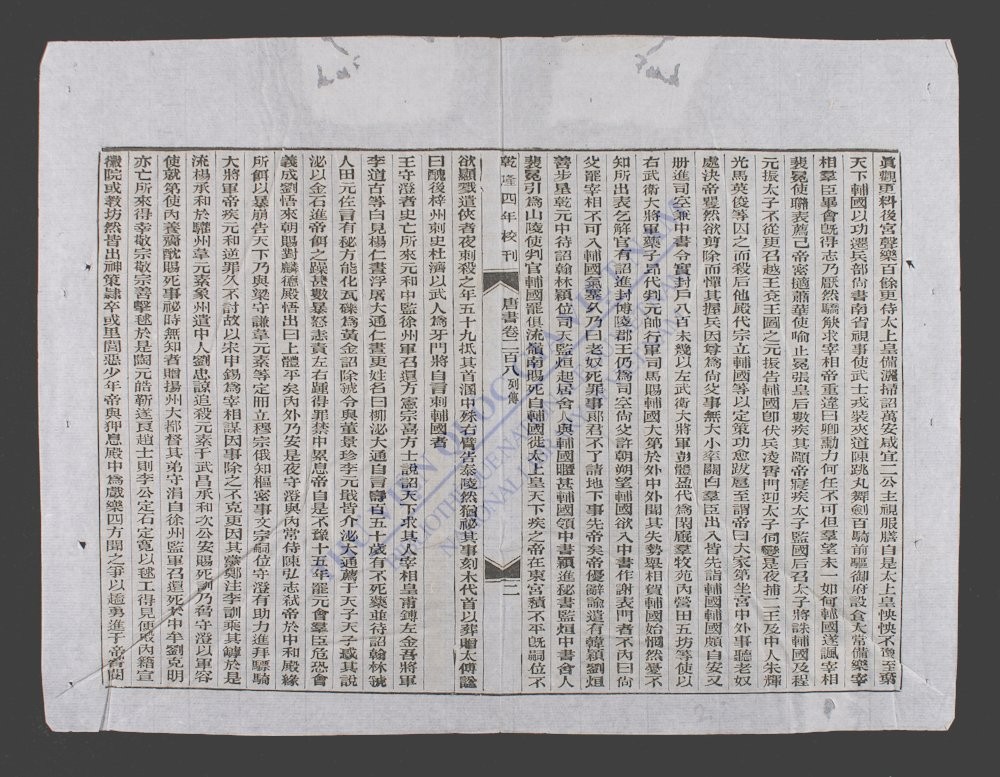 眞觀更料後宮聲樂百餘更侍太上皇備灑掃詔萬安咸宜二公主視服膳自是太上皇怏怏不豫至棄
天下輔國以功遷兵部尚書南省視事使武士戎裝夾道陳跳丸舞劍百騎前驅御府設食太常備樂宰
相羣臣畢會旣得志乃厭然驕觖求宰相帝重違曰卿勳力何任不可但羣望未一如何輔國遂諷宰相
裴冕使聯表薦己帝密擿蕭華使喻止冕張皇后數疾其顓帝寢疾太子監國后召太子將誅輔國及程
元振太子不從更召越王兗王圖之元振告輔國卽伏兵凌霄門迎太子伺變是夜捕二王及中人朱輝
光馬英俊等囚之而殺后他殿代宗立輔國等以定策功愈跋扈至謂帝曰大家第坐宮中外事聽老奴
處決帝矍然欲剪除而憚其握兵因尊爲尚父事無大小率關白羣臣出入皆先詣輔國輔國頗自安又
册進司空兼中書令實封戶八百未幾以左武衛大將軍彭體盈代爲閑廄羣牧苑內營田五坊等使以
右武衛大將軍藥子昂代判元帥行軍司馬賜輔國大第於外中外聞其失勢舉相賀輔國始惘然憂不
知所出表乞解官有詔進封博陵郡王仍爲司空尚父許朝朔望輔國欲入中書作謝表門者不內曰尚
父罷宰相不可入輔國氣塞久乃曰老奴死罪事郞君不了請地下事先帝矣帝優辭諭遣有韓穎劉烜
善步星乾元中待詔翰林穎位司天監烜起居舍人與輔國暱甚輔國領中書穎進秘書監烜中書舍人
裴冕引爲山陵使判官輔國罷俱流嶺南賜死自輔國徙太上皇天下疾之帝在東宮積不平旣嗣位不
乾隆四年校刊　唐書卷二百八列傳　二
欲顯戮遣俠者夜刺殺之年五十九抵其首溷中殊右臂告泰陵然猶祕其事刻木代首以葬贈太傅諡
曰醜後梓州刺史杜濟以武人爲牙門將自言刺輔國者
王守澄者史亡所來元和中監徐州軍召還方憲宗喜方士說詔天下求其人宰相皇甫鎛左金吾將軍
李道古等白見楊仁晝浮屠大通仁晝更姓名曰柳泌大通自言壽百五十歲有不死藥並待詔翰林虢
人田元佐言有秘方能化瓦礫爲黃金詔除虢令與董景珍李元戢皆介泌大通薦于天子天子惑其說
泌以金石進帝餌之躁甚數暴怒恚責左右踵得罪禁中累息帝自是不豫十五年罷元會羣臣危恐會
義成劉悟來朝賜對麟德殿悟出曰上體平矣內外乃安是夜守澄與內常侍陳弘志弒帝於中和殿緣
所餌以暴崩告天下乃與梁守謙韋元素等定冊立穆宗俄知樞密事文宗嗣位守澄有助力進拜驃騎
大將軍帝疾元和逆罪久不討故以宋申錫爲宰相謀因事除之不克更因其黨鄭注李訓乘其罅於是
流楊承和於驩州韋元素象州遣中人劉忠諒追殺元素于武昌承和次公安賜死訓乃脅守澄以軍容
使就第使內養齎酖賜死事祕時無知者贈揚州大都督其弟守涓自徐州監軍召還死於中牟劉克明
亦亡所來得幸敬宗敬宗善擊毬於是陶元皓靳遂良趙士則李公定石定寬以毬工得見便殿內籍宣
徽院或敎坊然皆出神策隸卒或里閭惡少年帝與狎息殿中爲戲樂四方聞之爭以趫勇進于帝嘗閱
THU VIEN QUOC GIA VIET NAM
BIBLIOTHEQUE NATIONALE DU VIETNAM
NATIONAL LIBRARY OF VIETNAM